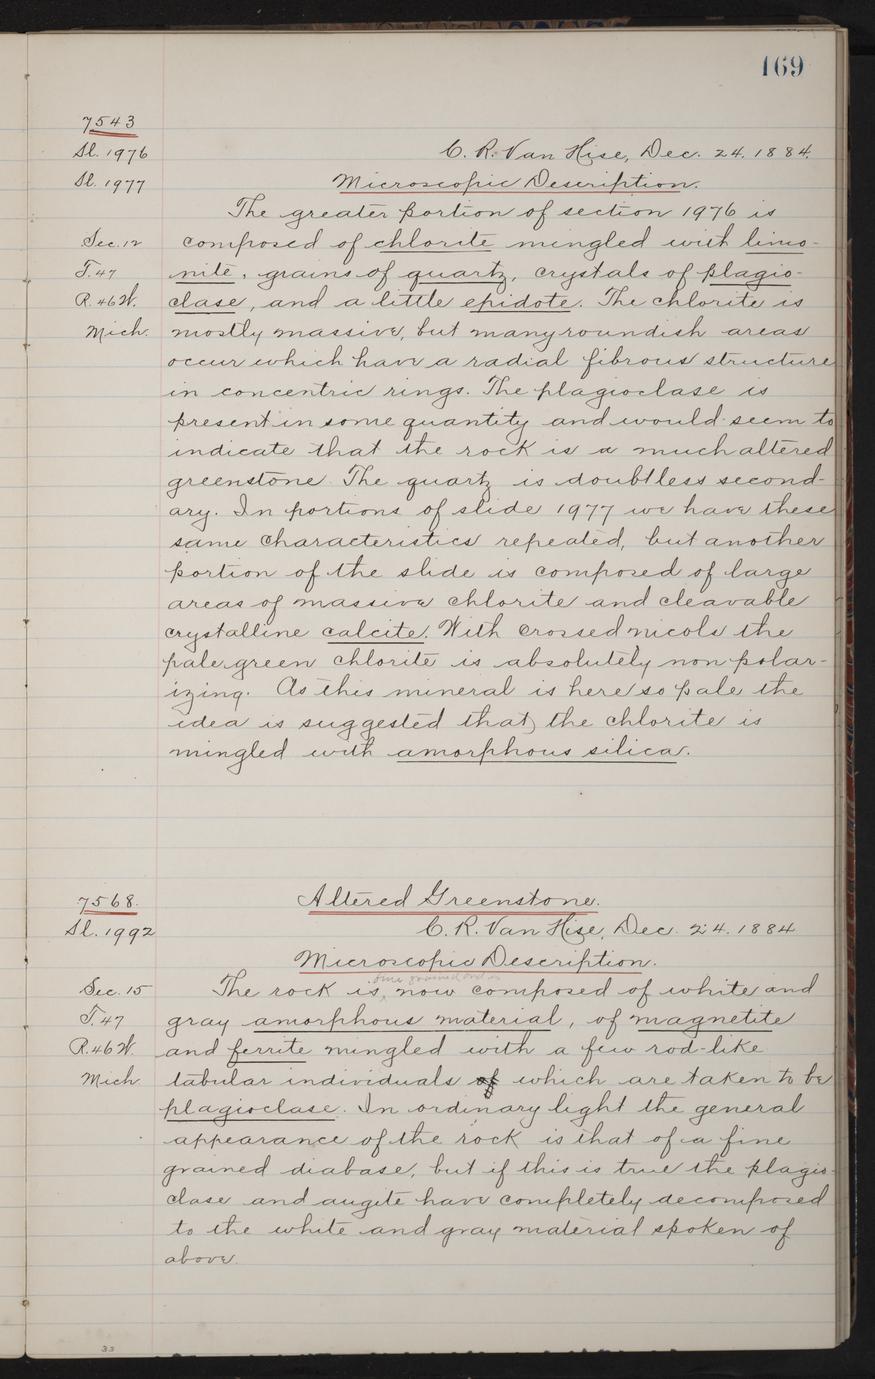 169
7543
Sl. 1976 C. R. Van Hise, Dec. 24. 1884.
Sl. 1977 Microscopic Description.
The greater portion of section 1976 is
Sec. 12 composed of chlorite mingled with limo-
T. 47 nite, grains of quartz, crystals of plagio-
R. 46 W. clase, and a little epidote. The chlorite is
Mich. mostly massive, but many roundish areas
occur which have a radial fibrous structure
in concentric rings. The plagioclase is
present in some quantity and would seem to
indicate that the rock is a much altered
greenstone. The quartz is doubtless second-
ary. In portions of slide 1977 we have these
same characteristics repeated, but another
portion of the slide is composed of large
areas of massive chlorite and cleavable
crystalline calcite. With crossed nicols the
pale green chlorite is absolutely non polar-
izing. As this mineral is here so pale the
idea is suggested that the chlorite is
mingled with amorphous silica.
7568. Altered Greenstone.
Sl. 1992 C. R. Van Hise, Dec. 24. 1884
Microscopic Description.
fine grained and is
Sec. 15 The rock is now composed of white and
T. 47 gray amorphous material, of magnetite
R. 46 W. and ferrite mingled with a few rod-like
Mich. tabular individuals of which are taken to be
plagioclase. In ordinary light the general
appearance of the rock is that of a fine
grained diabase, but if this is true the plagio-
clase and augite have completely decomposed
to the white and gray material spoken of
above.
33